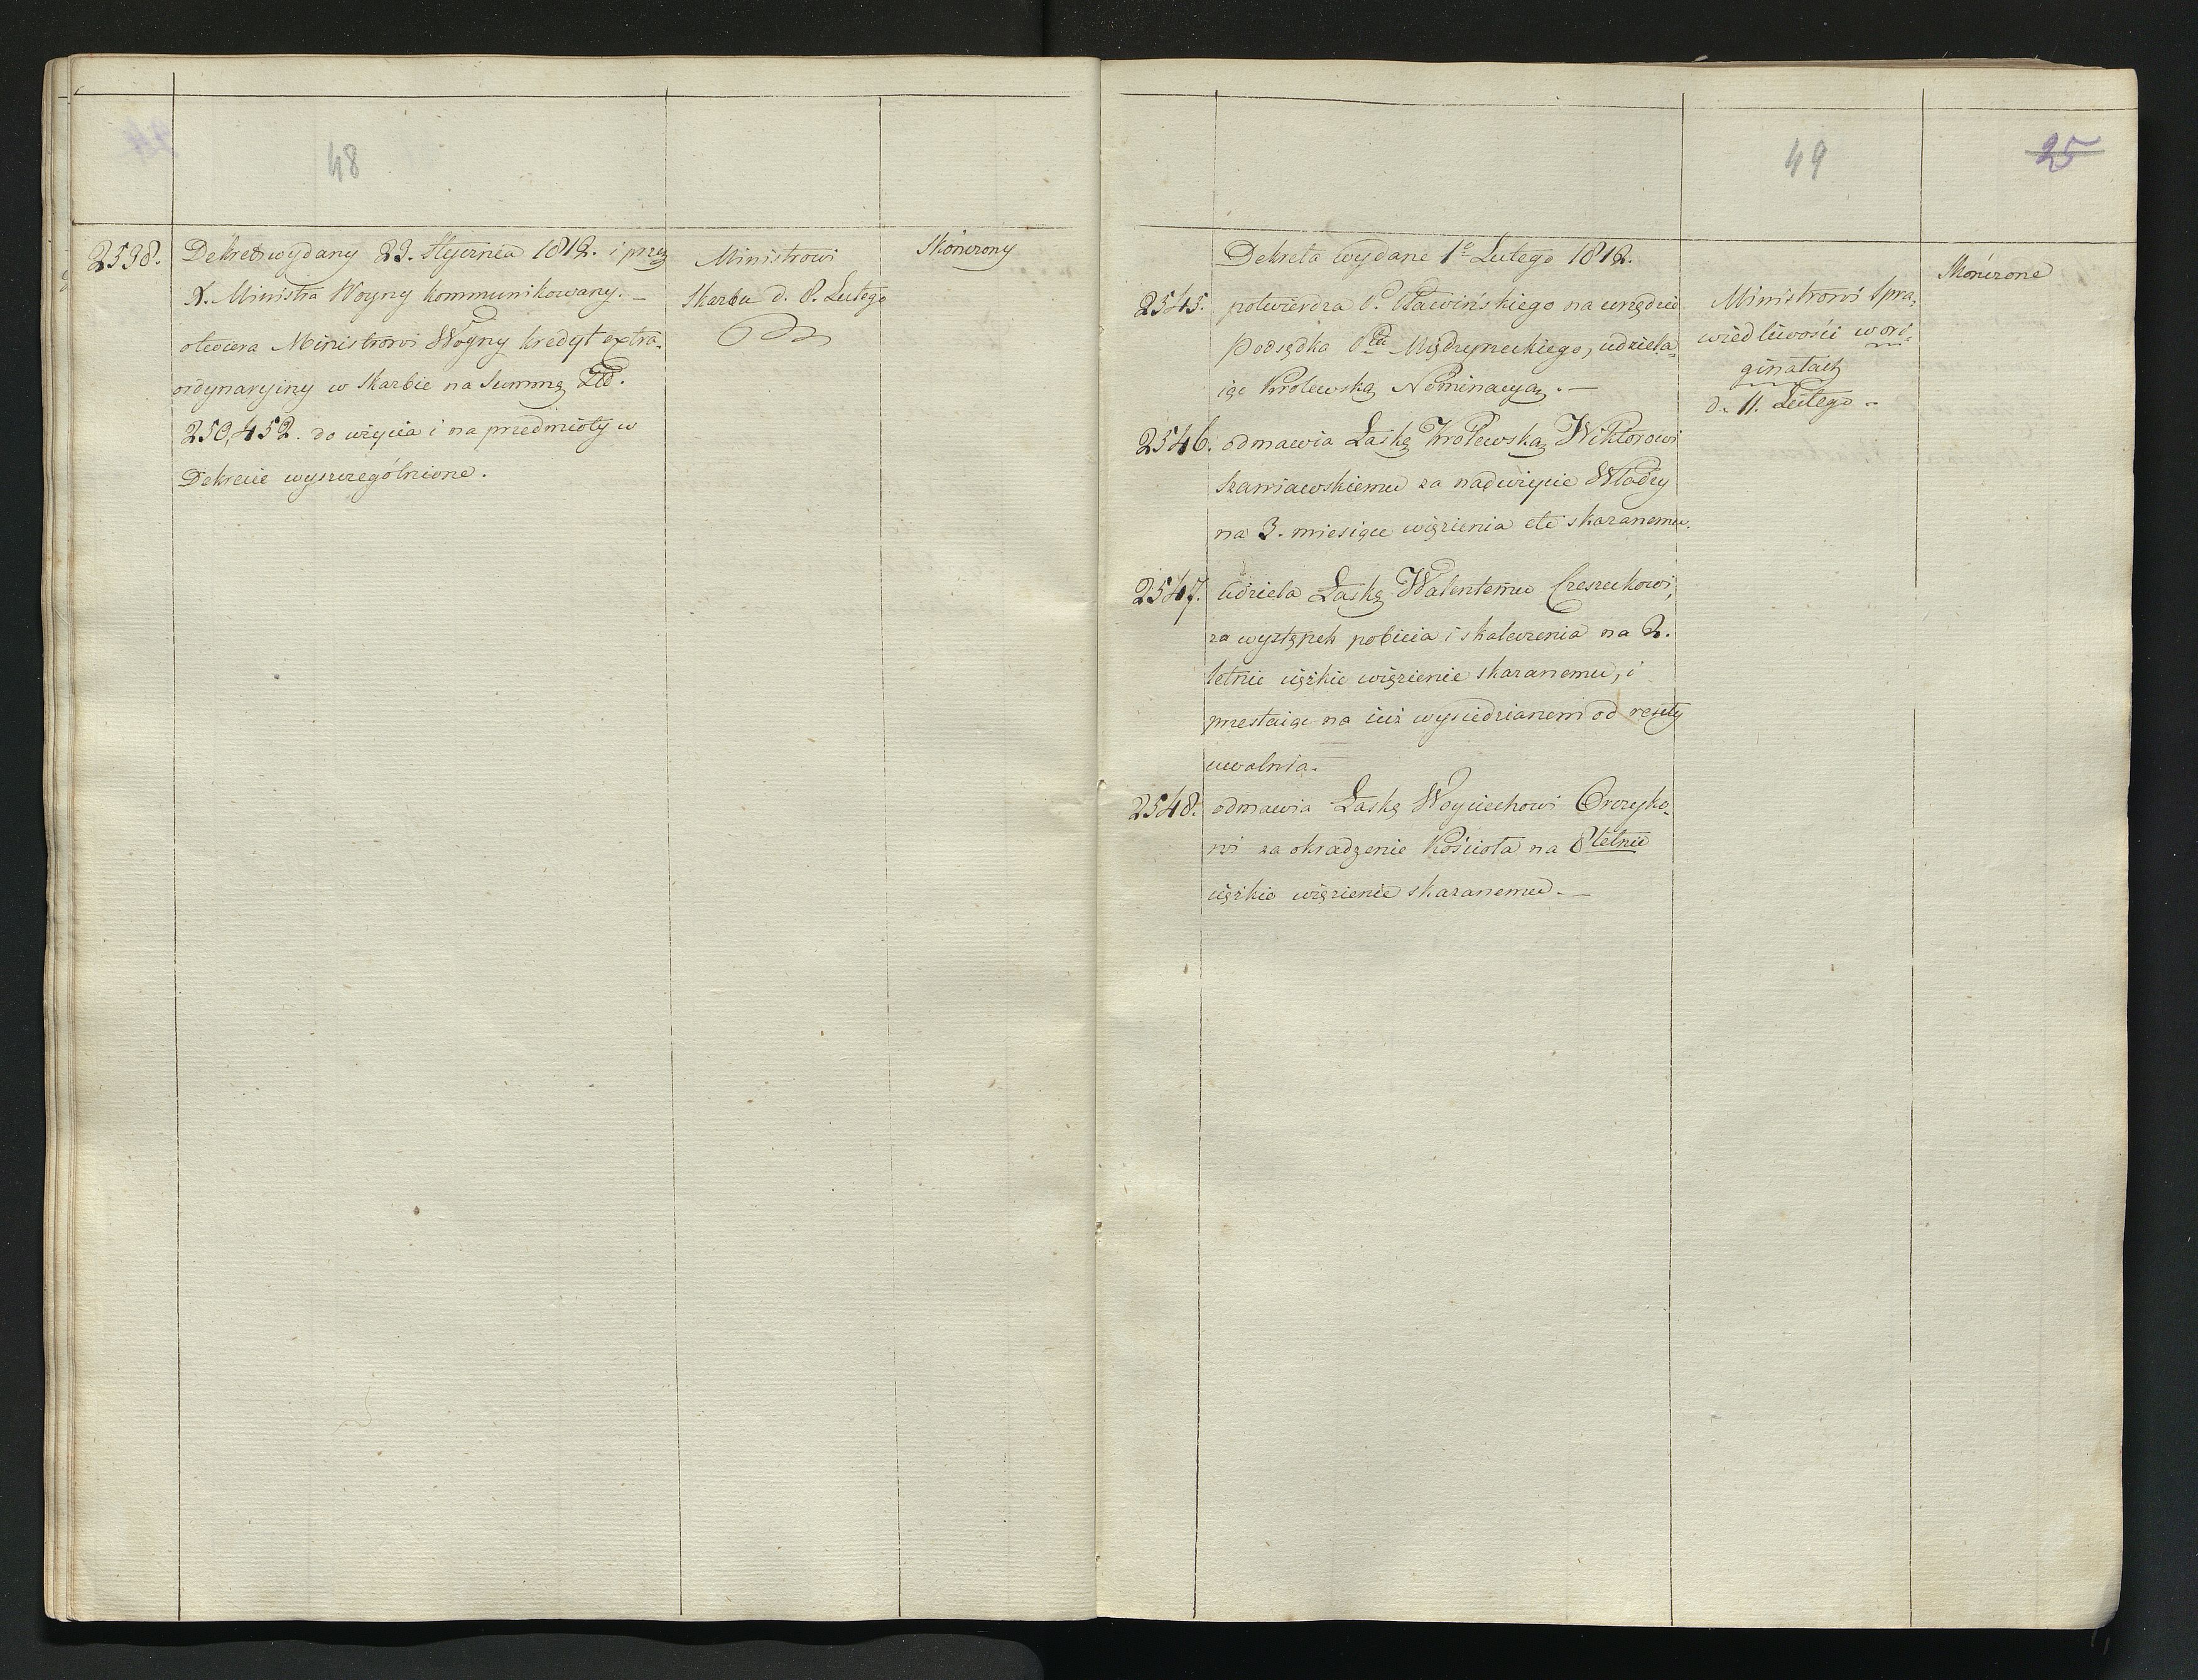 48
2538. Dekret wydany 23. Stycznia 1812. i przez
X. Ministra Woyny kommunikowany. —
otwiera Ministrowi Woyny kredyt extra-
ordynaryiny w Skarbie na Summę Złł.
250,452. do użycia i na przedmioty w
Dekrecie wyszczególnione.
Ministrowi
Skarbu d. 8. Lutego
Skończony
49
25
Dekreta wydane 1o Lutego 1812.
2545. potwierdza P. Sławińskiego na urzędzie
Podsędka Ptu Międzyrzeckiego, udziela=
iąc Królewską Nominacyą. —
2546. odmawia Łaskę Królewską Wiktorowi
Szaniawskiemu za nadużycie Władzy
na 3. miesiące więzienia etc skazanemu.
2547. udziela Łaskę Walentemu
za występek pobicia i skaleczenia na 2.
letnie ciężkie więzienie skazanemu, i
przestaiąc na iuż wysiedzianem od reszty
uwalnia.
2548. odmawia Łaskę Woyciechowi Orczyko-
wi za okradzenie Kościoła na 8letnie
ciężkie więzienie skazanemu. —
Ministrowi Spra-
wiedliwości w ori-
ginałach
d. 11. Lutego —
Skończone